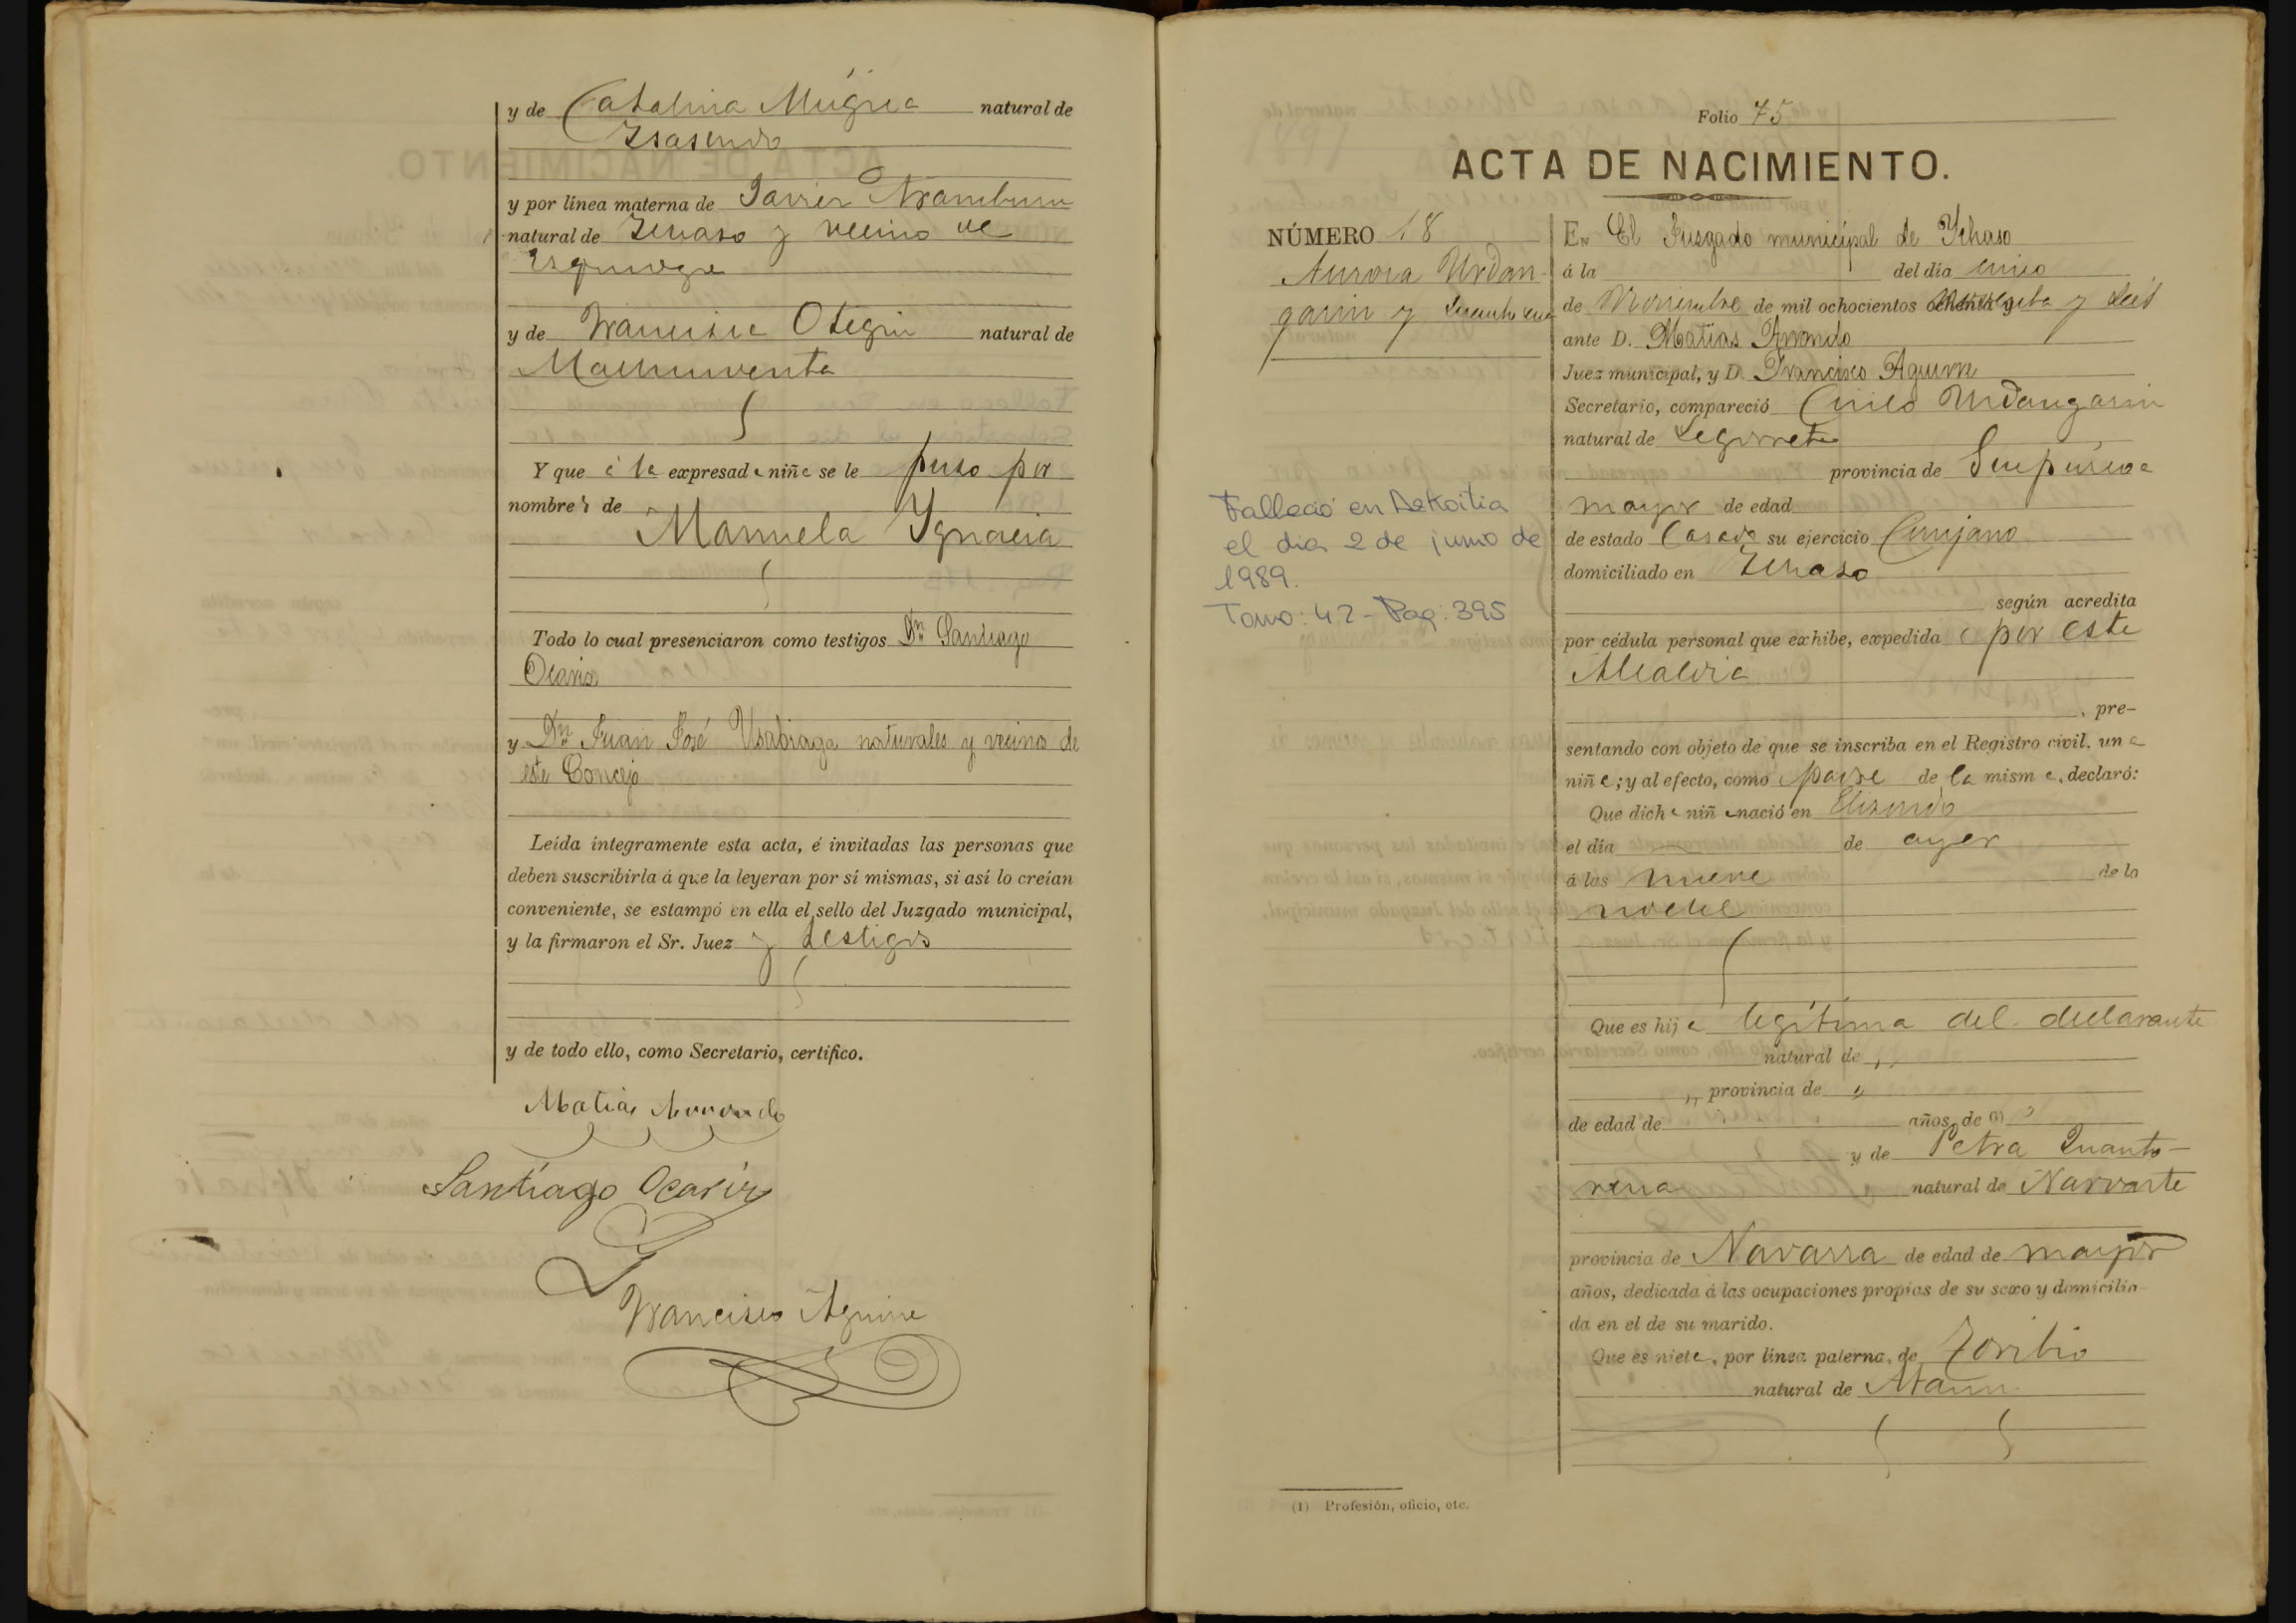 y de Catalina Múgica natural de
Isasondo
y por línea materna de Javier Aramburu
natural de Ichaso y vecino de
Esquioga
y de Francisca Otegui natural de
natural de
Y que á la expresada niña se le puso por
nombres de
Manuela Ygnacia
Todo lo cual presenciaron como testigos Dn Santiago
Ocariz
y Dn Juan José Usabiaga naturales y vecinos de
este Concejo
Leída íntegramente esta acta, é invitadas las personas que
deben suscribirla á que la leyeran por sí mismas, si así lo creían
conveniente, se estampó en ella el sello del Juzgado municipal,
y la firmaron el Sr. Juez y testigos
y de todo ello, como Secretario, certifico.
Matias Arrondo
Santiago Ocariz
Francisco Aguirre
Folio 75
ACTA DE NACIMIENTO.
NÚMERO 18
Aurora Urdan-
garin y
Falleció en Azkoitia
el dia 2 de junio de
1989.
Tomo: 42 - Pag: 395
En El Juzgado municipal de Ychaso
á la del día cinco
de Noviembre de mil ochocientos ochenta y seis
ante D. Matias Arrondo
Juez municipal, y D. Francisco Aguirre
Secretario, compareció Cirilo Urdangarin
natural de Legorreta
provincia de Guipúzcoa
mayor de edad
de estado Casado su ejercicio Cirujano
domiciliado en Ichaso
según acredita
por cédula personal que exhibe, expedida por esta
Alcaldia
, pre-
sentando con objeto de que se inscriba en el Registro civil. una
niña; y al efecto, como padre de la misma, declaró:
Que dicha niña nació en Elizondo
el día de ayer
á las nueve de la
noche
Que es hija legítima del declarante
natural de „
„ provincia de „
de edad de años, de (1) „
y de Petra
natural de Narvarte
provincia de Navarra de edad de mayor
años, dedicada á las ocupaciones propias de su sexo y domicilia-
da en el de su marido.
Que es nieta, por línea paterna, de Toribio
natural de Ataun
(1) Profesión, oficio, etc.